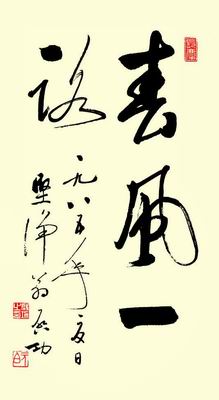 春風一
路
一九八五年夏日
堅淨翁启功